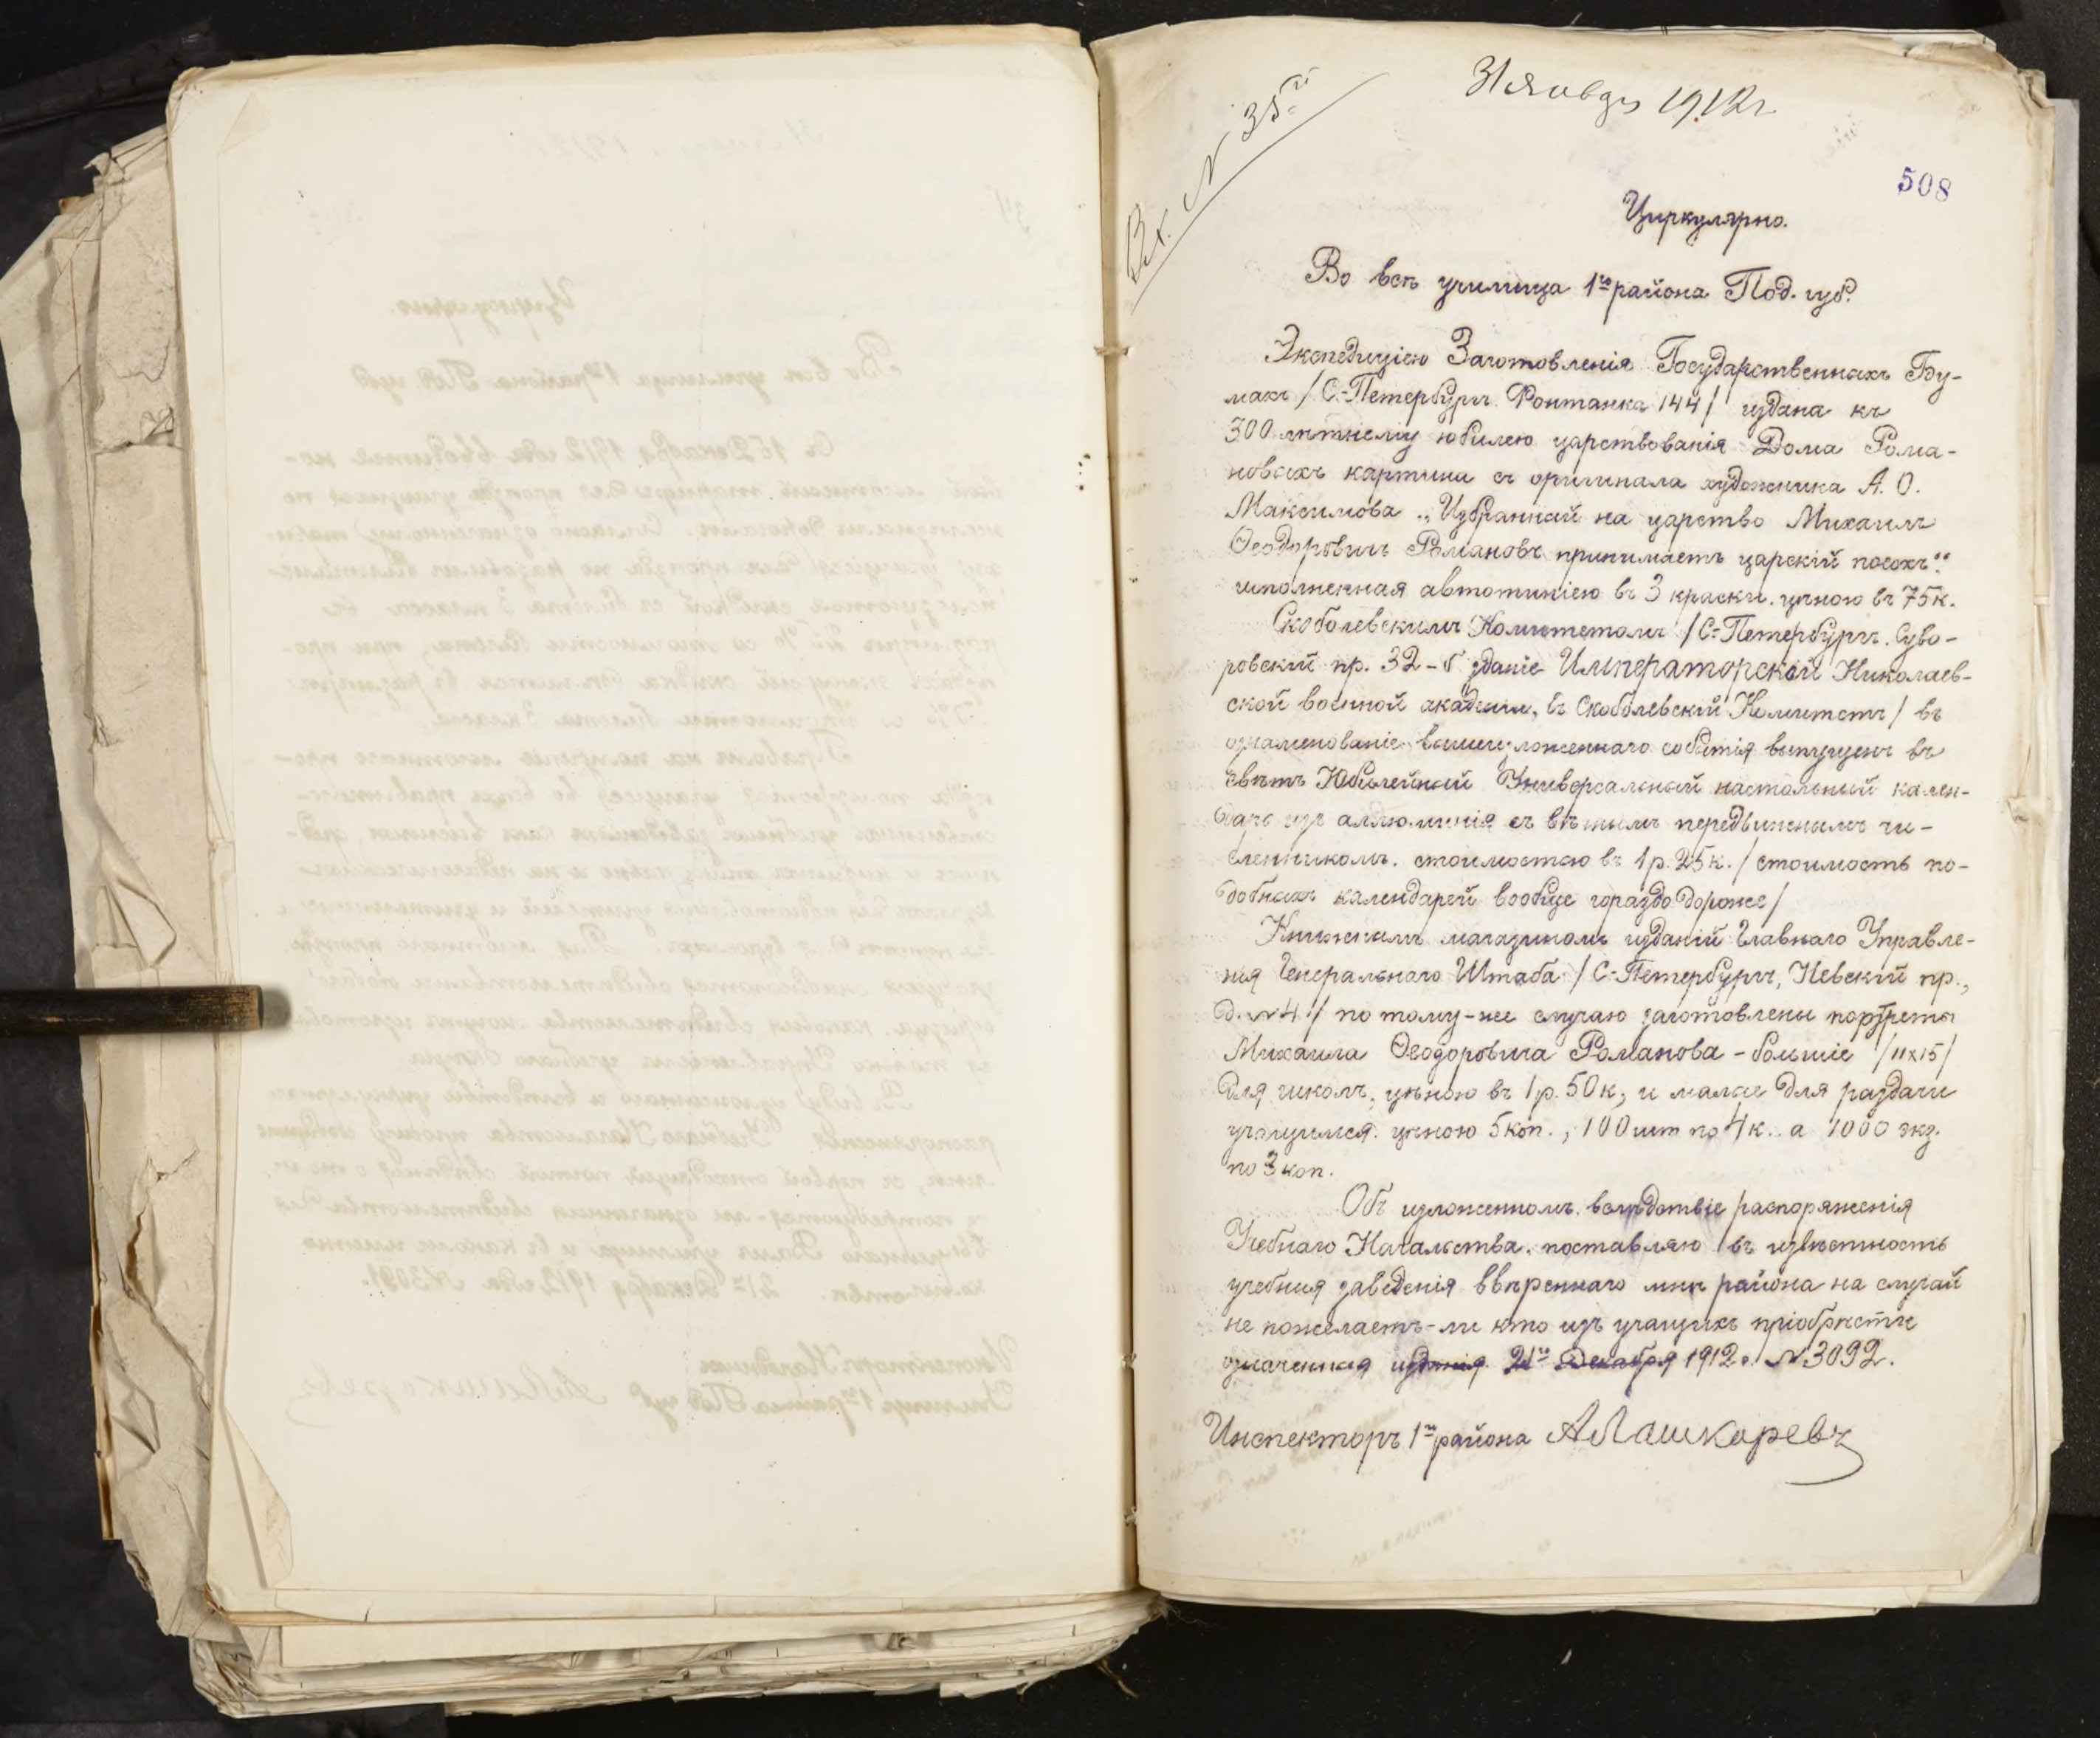 31 января 1912 г
Вх. N 35й
508
Циркулярно.
Во всѣ училища 1го района Под. губ.
Экспедиціею Заготовленія Государственныхъ Бу-
магъ / С.-Петербургъ Фонтанка 144 / издана къ
300 лѣтнему юбилею царствованія Дома Рома-
новыхъ картина съ оригинала художника А. О.
Максимова „Избранный на царство Михаилъ
Ѳеодоровичъ Романовъ принимаетъ царскій посохъ“.
исполненная автотипіею въ 3 краски, цѣною въ 75 к.
Скобелевскимъ Комитетомъ / С-Петербургъ. Суво-
ровскій пр. 32-б зданіе Императорской Николаев-
ской военной академіи, въ Скобелевскій Комитетъ / въ
ознаменованіе вышеизложеннаго событія выпущенъ въ
свѣтъ Юбилейный Универсальный настольный кален-
дарь изъ аллюминія съ вѣчнымъ передвижнымъ чи-
сленникомъ. стоимостью въ 1 р. 25 к. / стоимость по-
добныхъ календарей вообще гораздо дороже /
Книжнымъ магазиномъ изданій Главнаго Управле-
нія Генеральнаго Штаба / С-Петербургъ, Невскій пр.,
д. N 4 / по тому-же случаю заготовлены портреты
Михаила Ѳеодоровича Романова - большіе / 11x15 /
для школъ, цѣною въ 1 р. 50 к, и малые для раздачи
учащимся. цѣною 5 коп., 100 шт по 4 к.. а 1000 экз.
по 3 коп.
Объ изложенномъ. вслѣдствіе распоряженія
Учебнаго Начальства, поставляю въ извѣстность
учебныя заведенія ввѣреннаго мнѣ района на случай
не пожелаетъ-ли кто изъ учащихъ пріобрѣсти
означенныя изданія. 21го Декабря 1912 г. N 3092.
Инспекторъ 1го района АЛашкаревъ